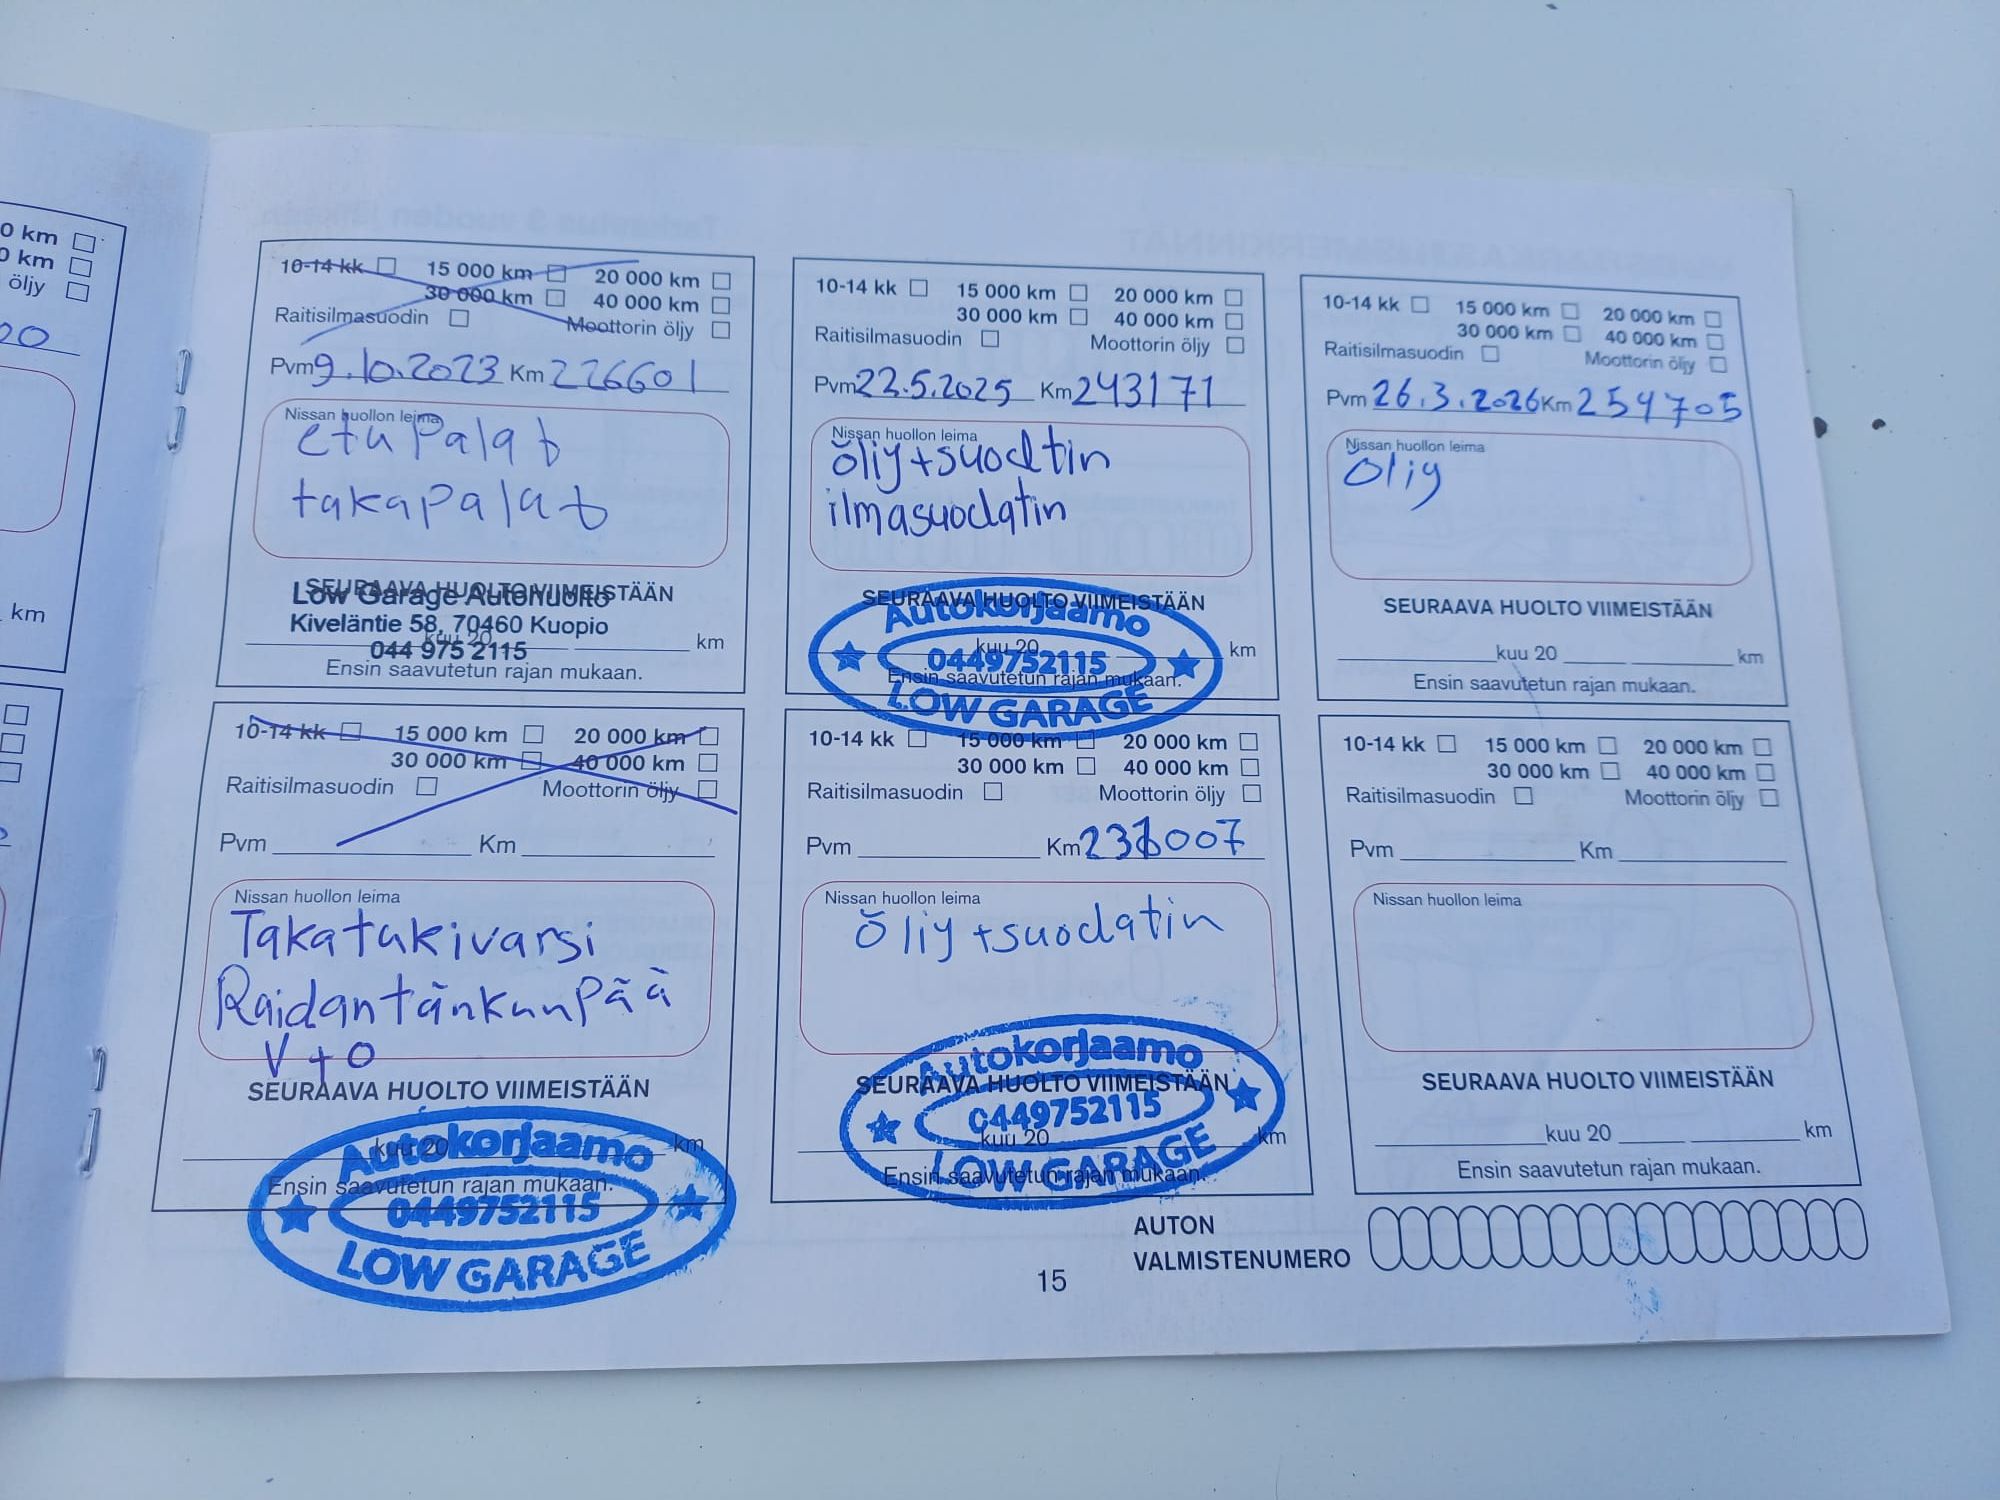 0 km
0 km
öljy
20
km
10-14 kk 15 000 km 20 000 km
30 000 km 40 000 km
Raitisilmasuodin Moottorin öljy
Pvm 9.10.2023 Km 226601
Nissan huollon leima
etupalat
takapalat
SEURAAVA HUOLTO VIIMEISTÄÄN
Low Garage Autohuolto
Kiveläntie 58, 70460 Kuopio
kuu 20 km
044 975 2115
Ensin saavutetun rajan mukaan.
10-14 kk 15 000 km 20 000 km
30 000 km 40 000 km
Raitisilmasuodin Moottorin öljy
Pvm 22.5.2025 Km 243171
Nissan huollon leima
öliy+suodtin
ilmasuodatin
SEURAAVA HUOLTO VIIMEISTÄÄN
Autokorjaamo
kuu 20 km
0449752115
Ensin saavutetun rajan mukaan.
LOW GARAGE
10-14 kk 15 000 km 20 000 km
30 000 km 40 000 km
Raitisilmasuodin Moottorin öljy
Pvm 26.3.2026 Km 254705
Nissan huollon leima
öliy
SEURAAVA HUOLTO VIIMEISTÄÄN
kuu 20 km
Ensin saavutetun rajan mukaan.
10-14 kk 15 000 km 20 000 km
30 000 km 40 000 km
Raitisilmasuodin Moottorin öljy
Pvm Km
Nissan huollon leima
Takatukivarsi
Raidantänkunpää
V+O
SEURAAVA HUOLTO VIIMEISTÄÄN
Autokorjaamo
kuu 20 km
Ensin saavutetun rajan mukaan.
0449752115
LOW GARAGE
10-14 kk 15 000 km 20 000 km
30 000 km 40 000 km
Raitisilmasuodin Moottorin öljy
Pvm Km
Nissan huollon leima
öliy+suodatin
Autokorjaamo
SEURAAVA HUOLTO VIIMEISTÄÄN
0449752115
kuu 20 km
Ensin saavutetun rajan mukaan.
LOW GARAGE
10-14 kk 15 000 km 20 000 km
30 000 km 40 000 km
Raitisilmasuodin Moottorin öljy
Pvm Km
Nissan huollon leima
SEURAAVA HUOLTO VIIMEISTÄÄN
kuu 20 km
Ensin saavutetun rajan mukaan.
AUTON
VALMISTENUMERO
15